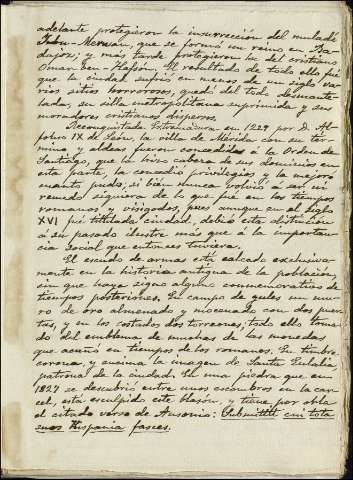 adelante protegieron la insurrección del muladí
Ibn-Meruán, que se formó un reino en Ba-
dajoz; y más tarde protegieron la del cristiano
Omar ben Hafsón. El resultado de todo ello fué
que la ciudad sufrió en menos de un siglo va-
rios sitios horrorosos, quedó del todo desmante-
lada, su silla metropolitana suprimida y sus
moradores cristianos dispersos.
Reconquistada Extremadura en 1229 por D. Al-
fonso IX de León, la villa de Mérida con su tér-
mino y aldeas fueron concedidas á la Orden de
Santiago, que la hizo cabeza de sus dominios en
esta parte, la concedió privilegios y la mejoró
cuanto pudo; si bien nunca volvió á ser ni
remedo siquiera de lo que fué en los tiempos
romanos y visigodos, pues aunque en el siglo
XVI fué titulada ciudad, debió esta distinción
á su pasado ilustre más que á la importan-
cia social que entonces tuviera.
El escudo de armas está calcado exclusiva-
mente en la historia antigua de la población,
sin que haya signo alguno conmemorativo de
tiempos posteriores. En campo de gules un mu-
ro de oro almenado y mazonado con dos puer-
tas, y en los costados dos torreones, todo ello toma-
do del emblema de muchas de las monedas
que acuñó en tiempos de los romanos. En timbre
corona, y encima la imagen de Santa Eulalia
patrona de la ciudad. En una piedra que en
1827 se descubrió entre unos escombros en la cár-
cel, está esculpido este blasón, y tiene por orla
el citado verso de Ausonio: Submittit cui tota
suos Hispania fasces.